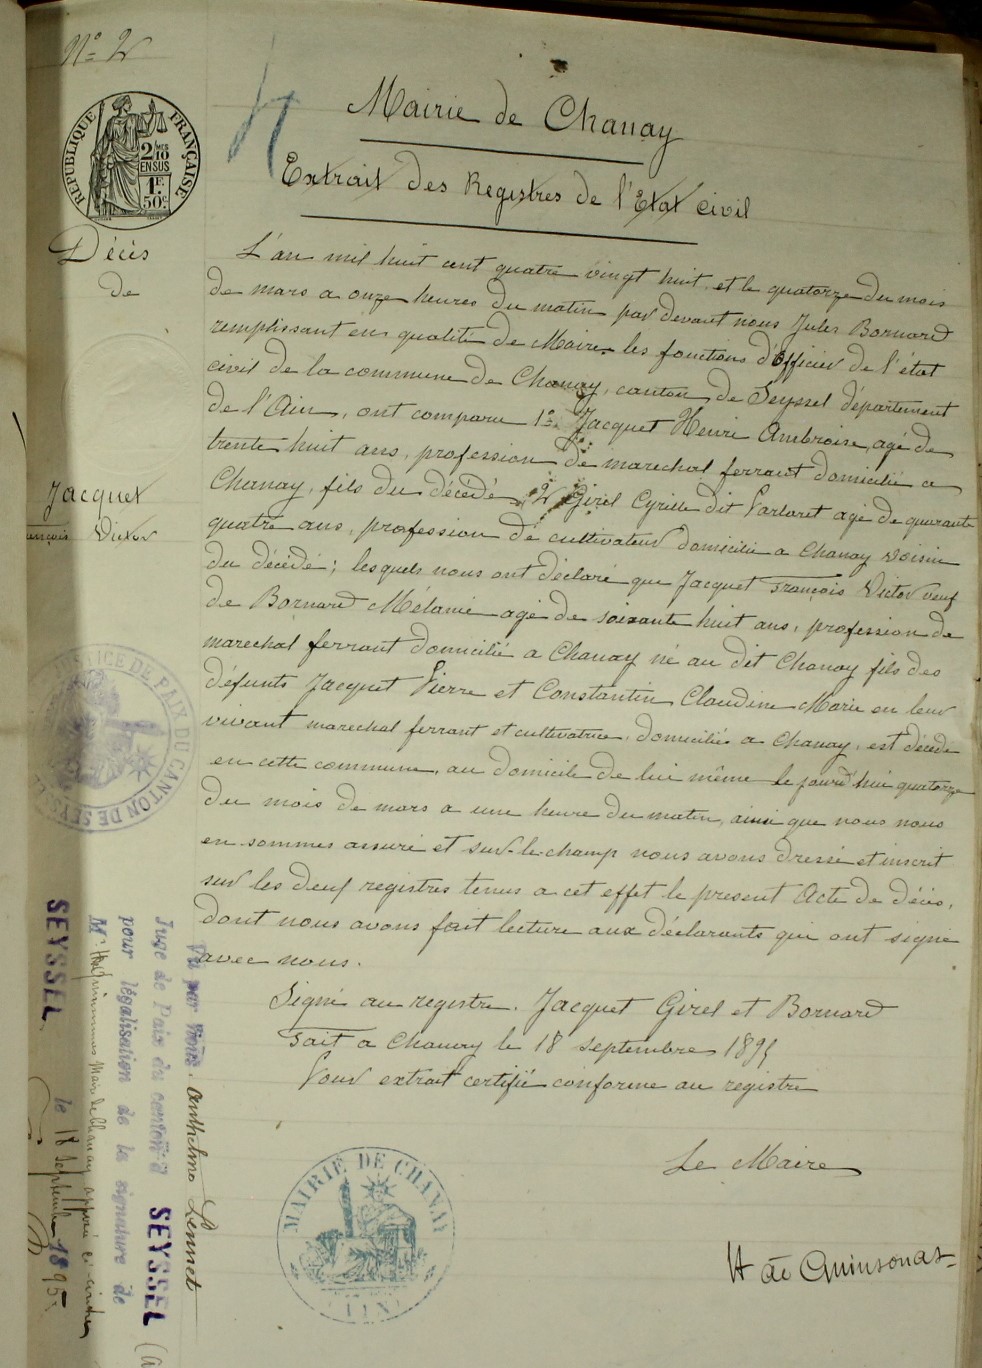 N° 2
RÉPUBLIQUE FRANÇAISE
2/10 MES
EN SUS
1F.
50c.
Décès
de
Jacquet
François Victor
Mairie de Chanay
Extrait des Registres de l'Etat civil
L'an mil huit cent quatre vingt huit et le quatorze du mois
de mars a onze heures du matin par devant nous Jules Bornard
remplissant en qualité de Maire les fonctions d'Officier de l'état
civil de la commune de Chanay, canton de Seyssel département
de l'Ain, ont comparu 1° Jacquet Henri Ambroise, agé de
trente huit ans, profession de marechal ferrant domicilié a
Chanay, fils du décédé 2° Girel Cyrille dit Parloret agé de quarante
quatre ans, profession de cultivateur domicilié a Chanay voisin
du décédé; lesquels nous ont déclaré que Jacquet François Victor veuf
de Bornard Mélanie agé de soixante huit ans, profession de
marechal ferrant domicilié a Chanay né au dit Chanay fils des
défunts Jacquet Pierre et Constantin Claudine Marie en leur
vivant marechal ferrant et cultivatrice, domiciliés a Chanay, est décédé
en cette commune, au domicile de lui même le jourd'hui quatorze
du mois de mars a une heure du matin, ainsi que nous nous
en sommes assuré et sur-le-champ nous avons dressé et inscrit
sur les deux registres tenus a cet effet le present Acte de décès,
dont nous avons fait lecture aux déclarants qui ont signé
avec nous.
Signé au registre. Jacquet Girel et Bornard
Fait a Chanay le 18 septembre 1895
Pour extrait certifié conforme au registre
Le Maire
H de Quinsonas
MAIRIE DE CHANAY
(AIN)
JUSTICE DE PAIX DU CANTON DE SEYSSEL
Vu par Nous. Anthelme Lennet
Juge de Paix du canton d SEYSSEL
pour légalisation de la signature de
Mr Maire de Chanay apposée ci-contre
SEYSSEL le 18 septembre 1895